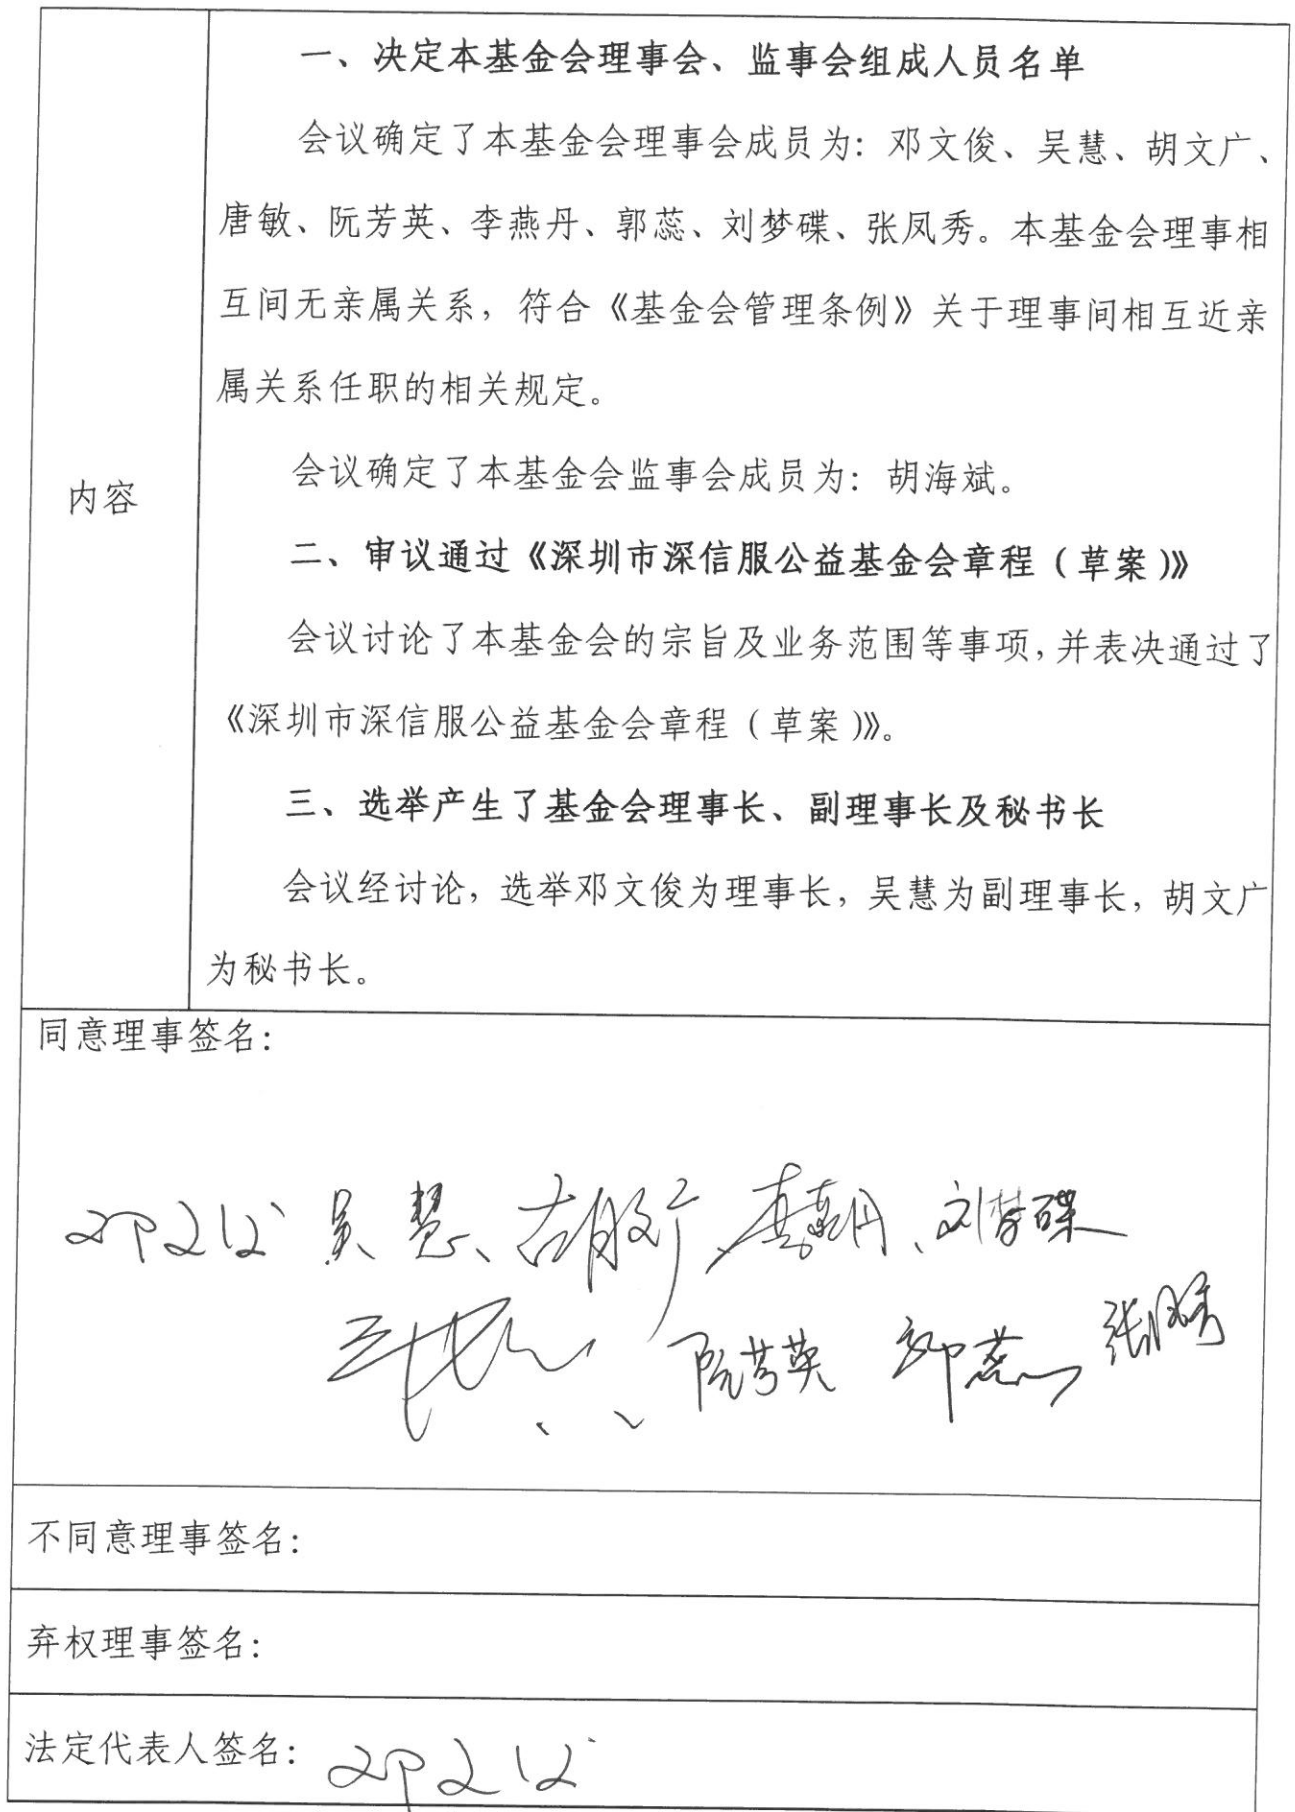 一、决定本基金会理事会、监事会组成人员名单
会议确定了本基金会理事会成员为：邓文俊、吴慧、胡文广、
唐敏、阮芳英、李燕丹、郭蕊、刘梦碟、张凤秀。本基金会理事相
互间无亲属关系，符合《基金会管理条例》关于理事间相互近亲
属关系任职的相关规定。
会议确定了本基金会监事会成员为：胡海斌。
内容
二、审议通过《深圳市深信服公益基金会章程（草案）》
会议讨论了本基金会的宗旨及业务范围等事项，并表决通过了
《深圳市深信服公益基金会章程（草案）》。
三、选举产生了基金会理事长、副理事长及秘书长
会议经讨论，选举邓文俊为理事长，吴慧为副理事长，胡文广
为秘书长。
同意理事签名：
邓文俊 吴慧、胡文广、李燕丹、刘梦碟
阮芳英 郭蕊 张凤秀
不同意理事签名：
弃权理事签名：
法定代表人签名：邓文俊